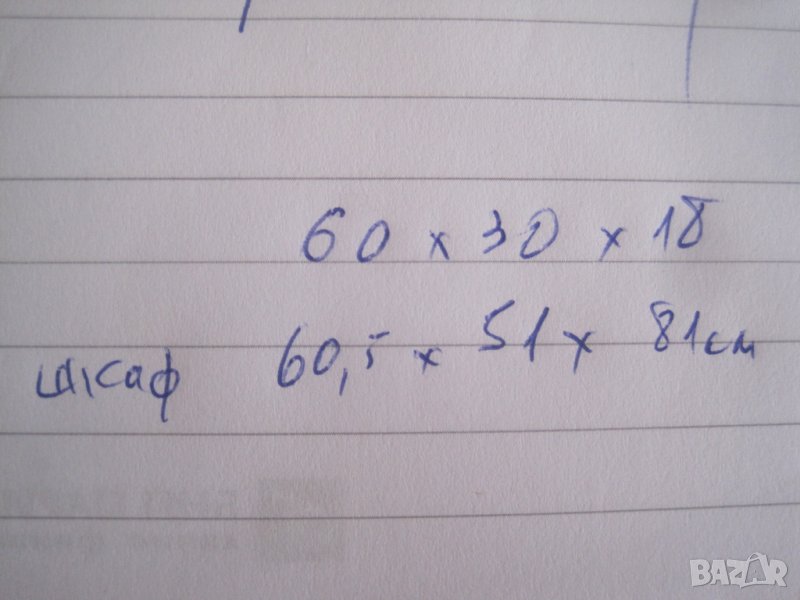 60 x 30 x 18
шкаф 60,5 x 51 x 81см
BAZAR